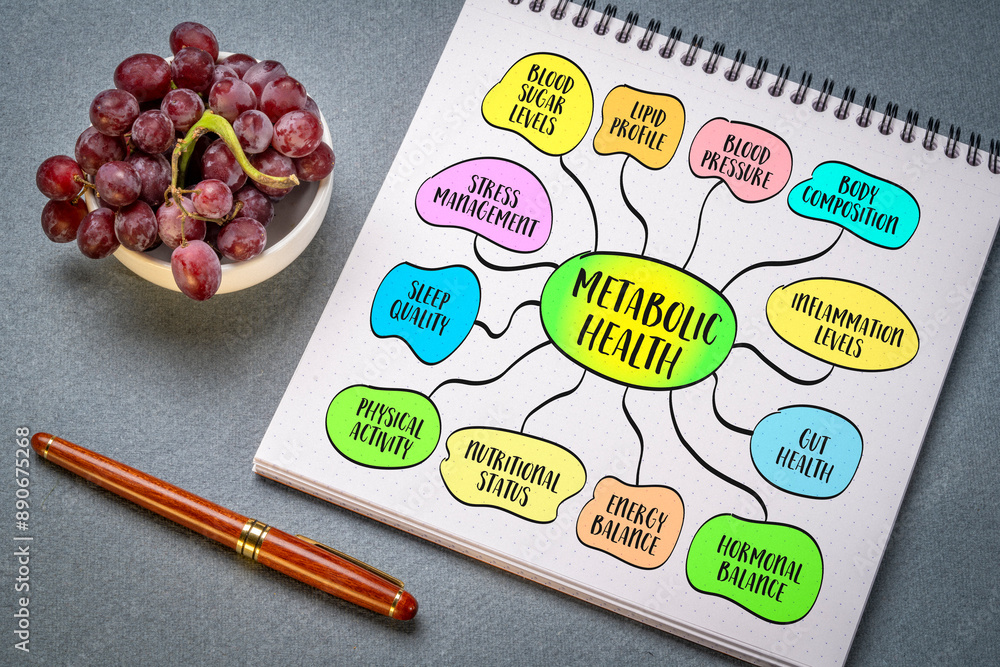 BLOOD
SUGAR
LEVELS
LIPID
PROFILE
BLOOD
PRESSURE
BODY
COMPOSITION
STRESS
MANAGEMENT
METABOLIC
HEALTH
INFLAMMATION
LEVELS
SLEEP
QUALITY
PHYSICAL
ACTIVITY
NUTRITIONAL
STATUS
ENERGY
BALANCE
HORMONAL
BALANCE
GUT
HEALTH
Adobe Stock | #890675268